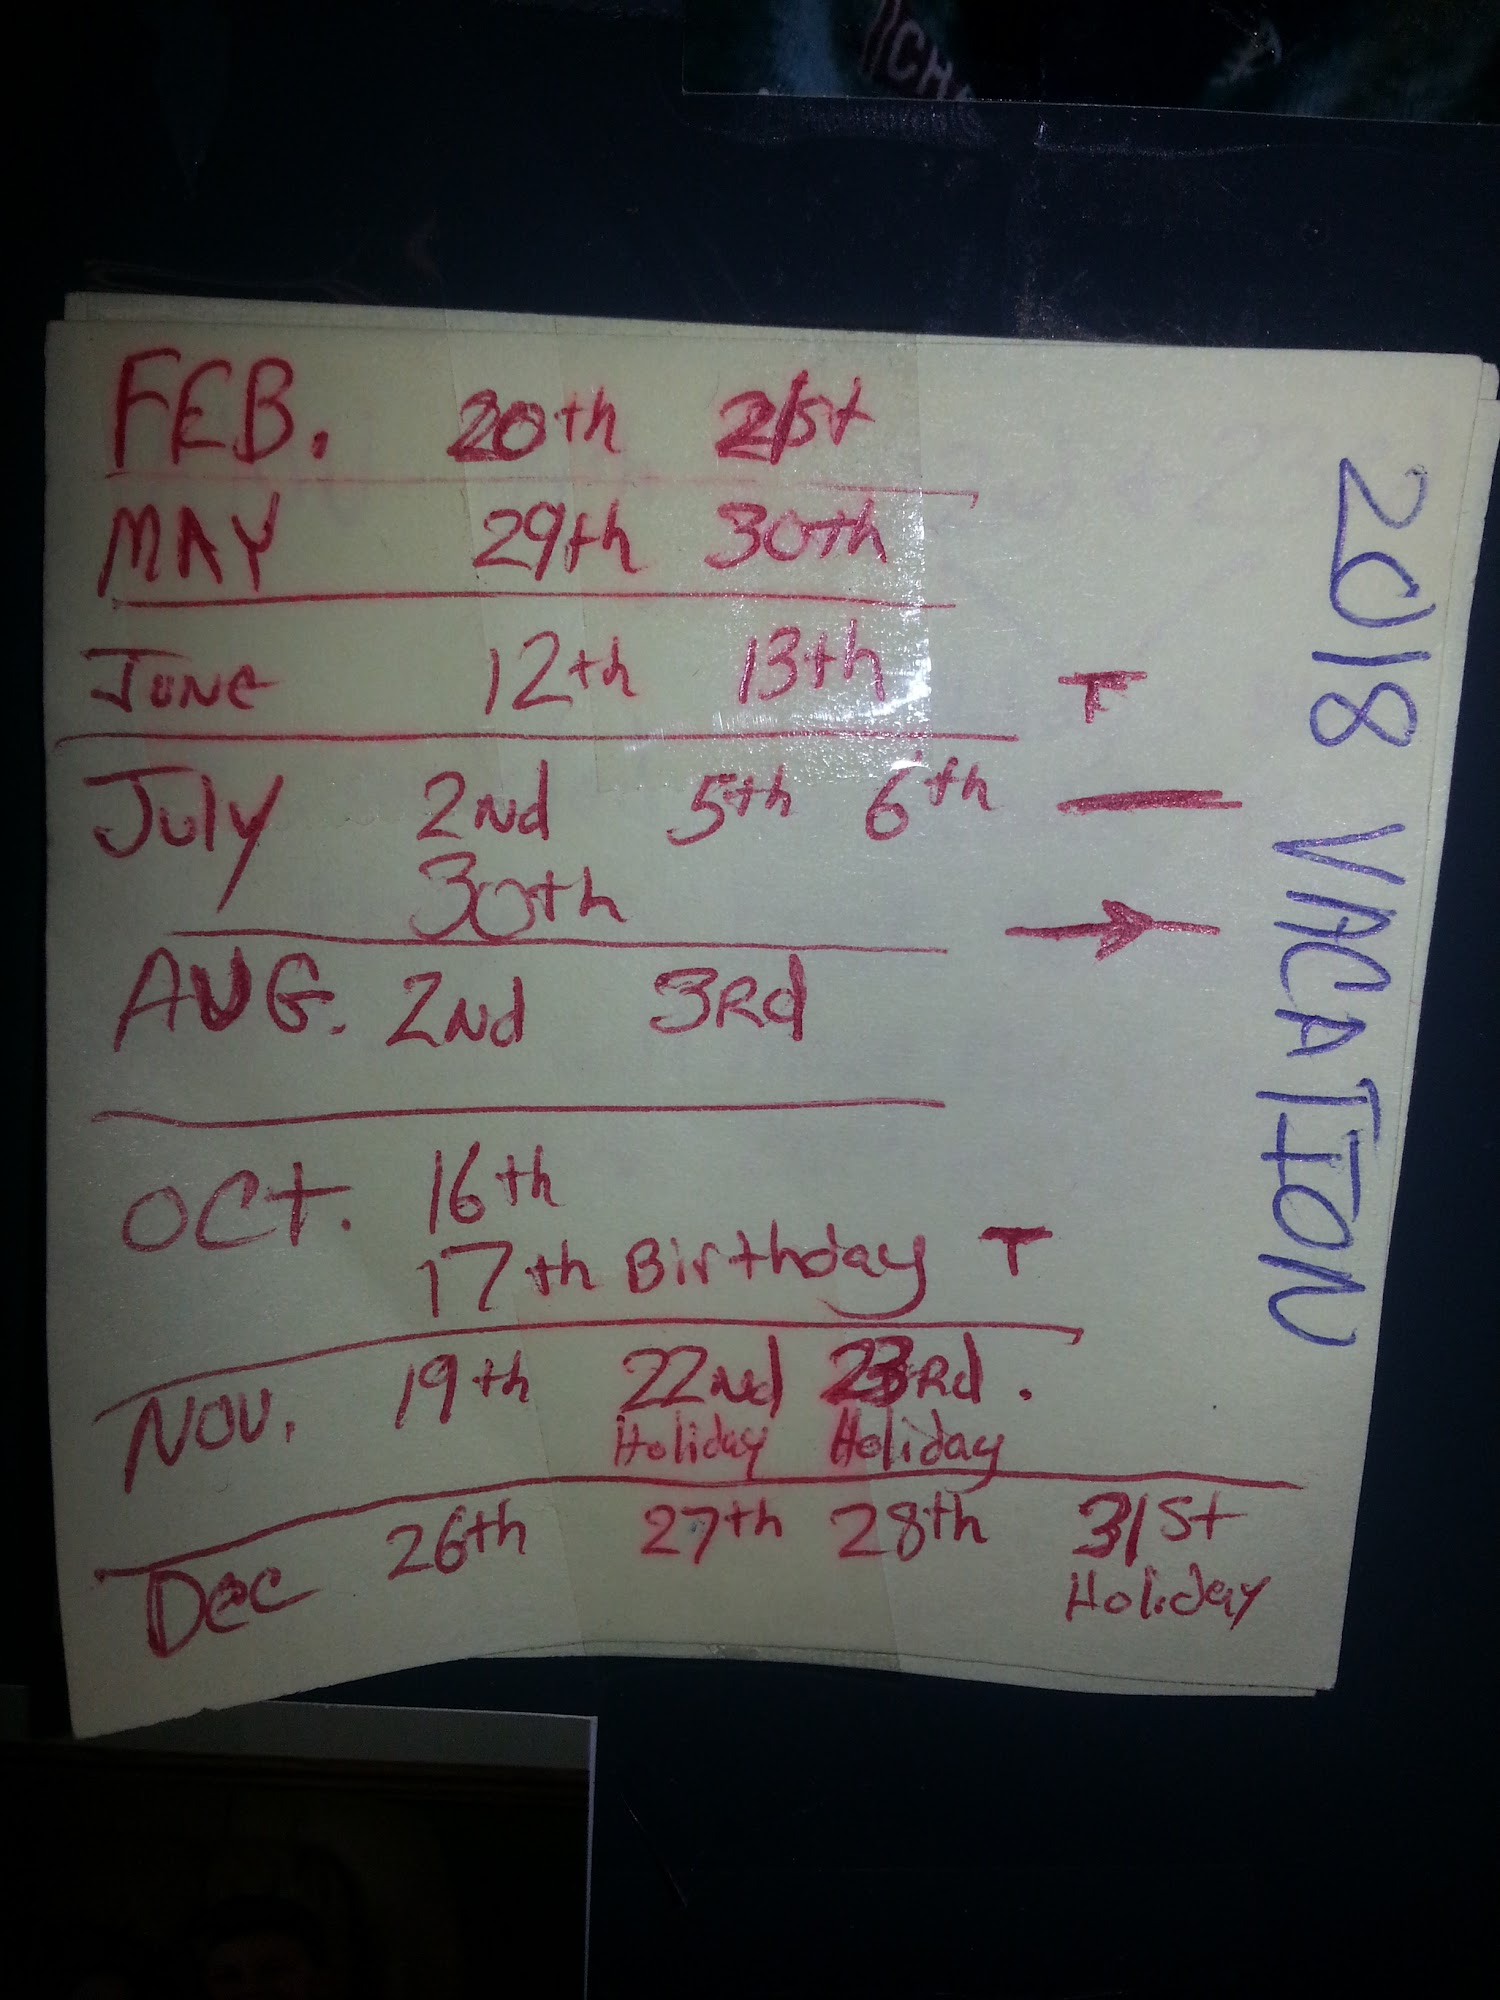 FEB. 20th 21st
MAY 29th 30th
June 12th 13th T
July 2nd 5th 6th
30th
AUG. 2nd 3Rd
OCT. 16th
17th Birthday T
NOV. 19th 22nd 23Rd.
Holiday Holiday
Dec 26th 27th 28th 31st
Holiday
2018 VACATION